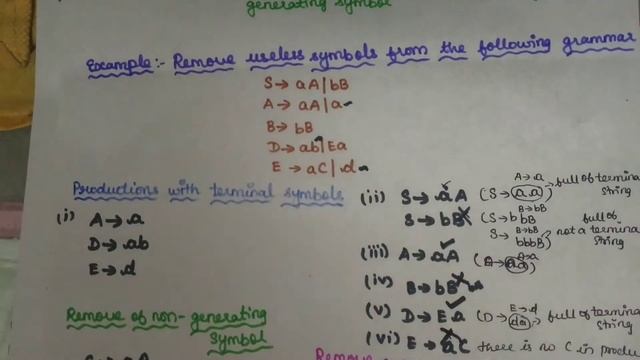 generating symbol
Example:- Remove useless symbols from the following grammar
S→ aA|bB
A→ aA|a
B→ bB
D→ ab|Ea
E → aC|d
Productions with terminal symbols
(i) A→ a
D→ ab
E→ d
(ii) S→ aA (S→ aa) A→a full of terminal string
S→ bB (S→ bbB B→bB
S→ bbbB) B→bB full of not a terminal string
(iii) A→ aA (A→ aa) A→a
(iv) B→ bB
(v) D→ Ea (D→ da) E→d full of terminal string
(vi) E→ aC there is no C in produ
Remove of non-generating
Symbol
Remove